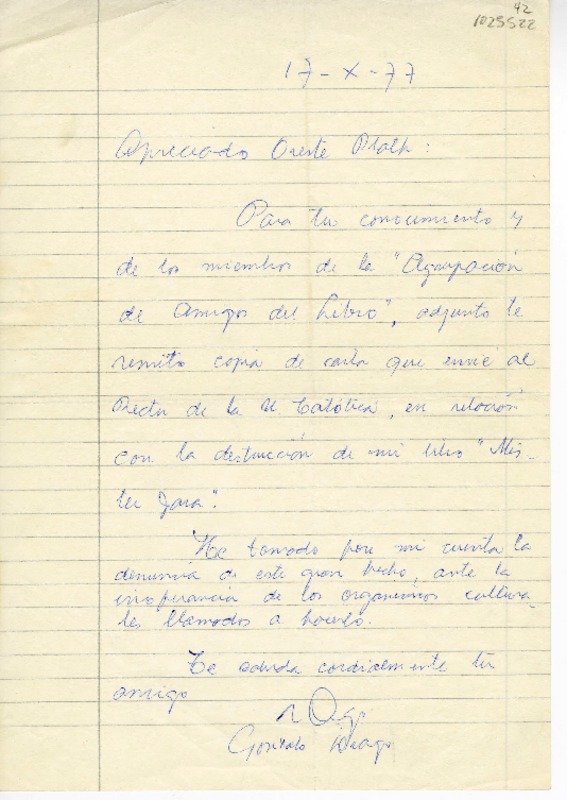 42
1025522
17-X-77
Apreciado Oreste Plath:
Para tu conocimiento y
de los miembros de la "Agrupación
de Amigos del Libro", adjunto te
remito copia de carta que envié al
Rector de la U. Católica, en relación
con la destrucción de mi libro "Mis-
ter Jara".
He tomado por mi cuenta la
denuncia de este gran hecho, ante la
inoperancia de los organismos cultura-
les llamados a hacerlo.
Te saluda cordialmente tu
amigo
Gonzalo Drago